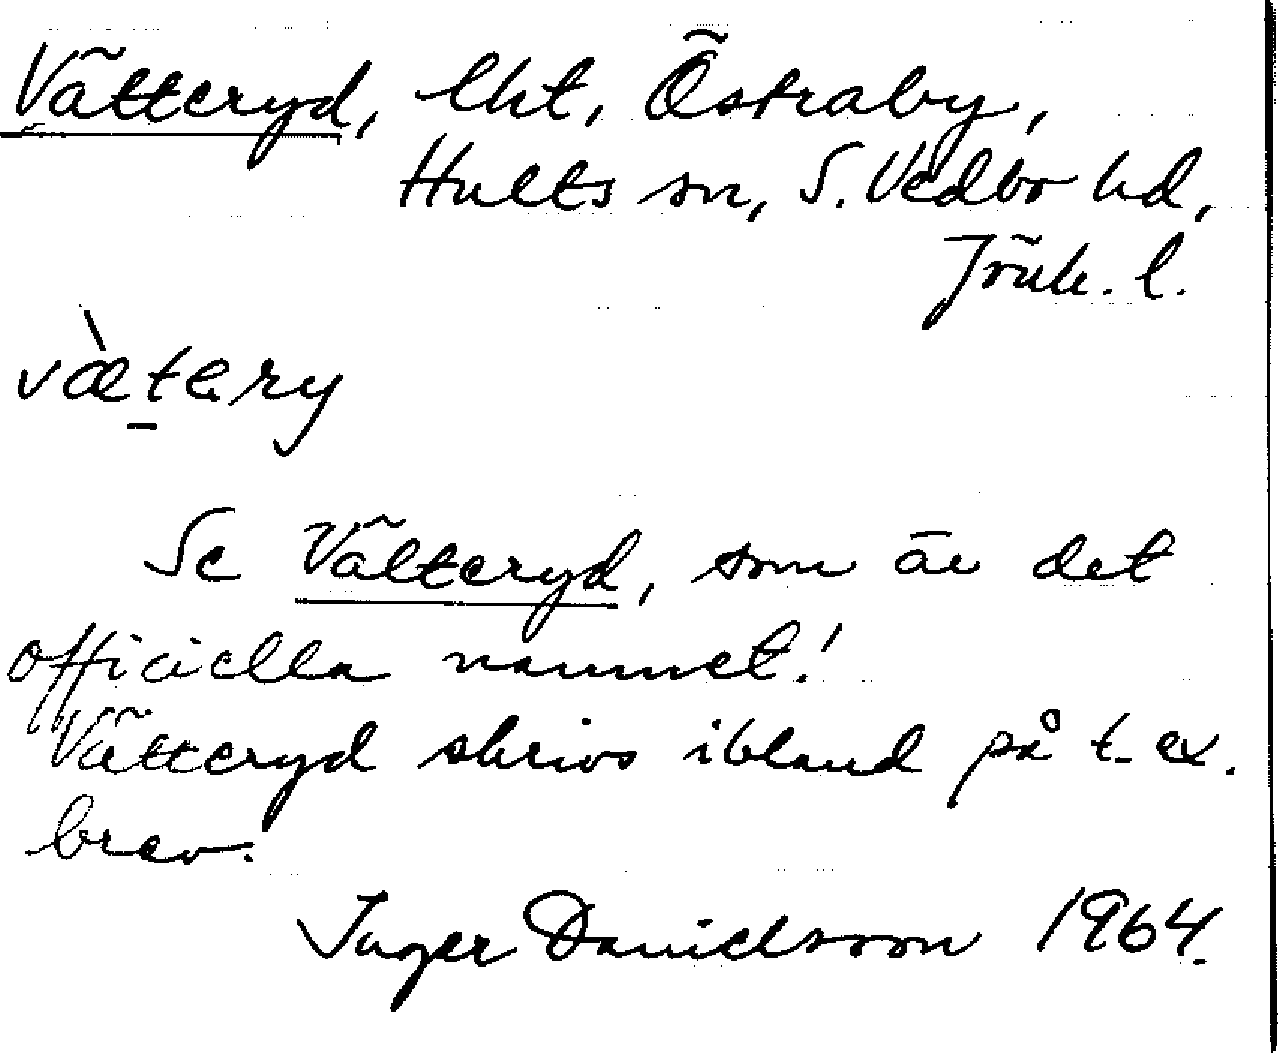 Vätteryd, lht, Östraby,
Hults sn, S. Vedbo hd,
Jönk. l.
væ̀t̠ery
Se Vätteryd, som är det
officiella namnet!
Vätteryd skrivs ibland på t. ex.
brev.
Inger Danielsson 1964.